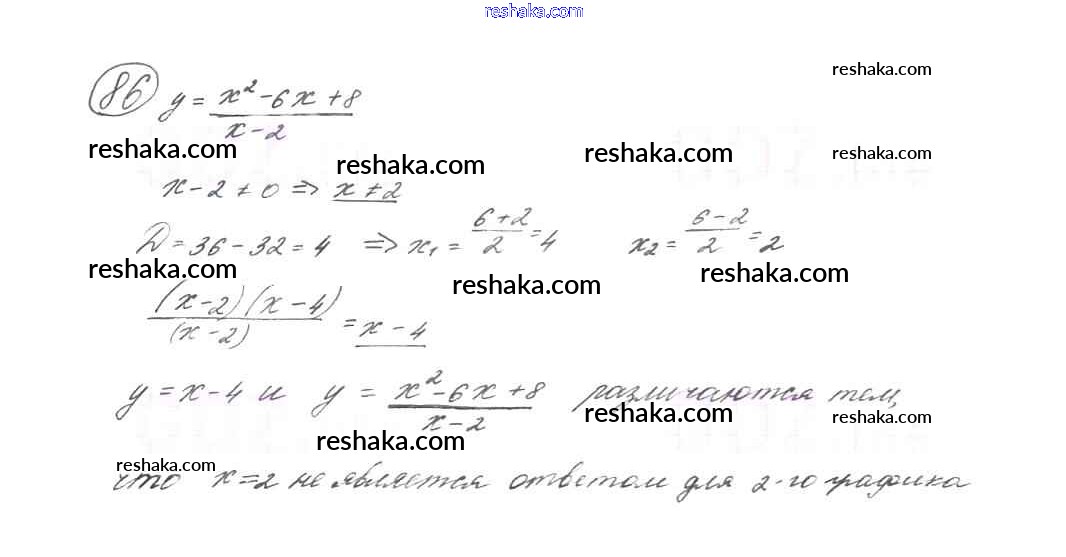 reshaka.com
reshaka.com
86 y = (x² - 6x + 8)/(x - 2)
reshaka.com reshaka.com reshaka.com reshaka.com
x - 2 ≠ 0 => x ≠ 2
D = 36 - 32 = 4 => x₁ = (6+2)/2 = 4 x₂ = (6-2)/2 = 2
reshaka.com reshaka.com reshaka.com
(x-2)(x-4)/(x-2) = x - 4
y = x - 4 и y = (x² - 6x + 8)/(x - 2) различаются тем,
reshaka.com reshaka.com reshaka.com
reshaka.com
что x = 2 не является ответом для 2-го графика